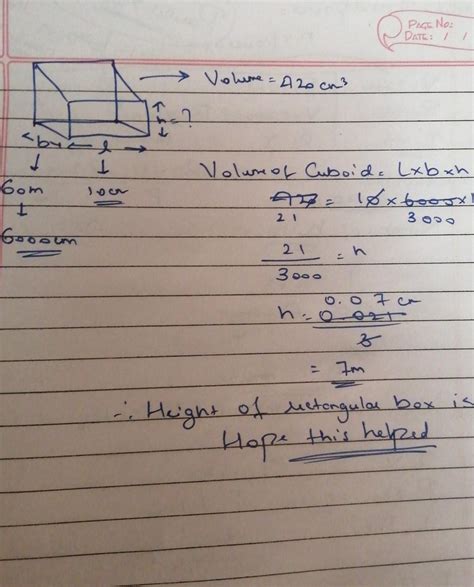 PAGE NO:
DATE: / /
Volume = 420 cm³
h = ?
b l
60m 10cm
6000cm
Volume of Cuboid = L x b x h
420 = 10 x 6000 x
21 3000
21 = h
3000
0.07 cm
h = 0.021
3
= 7m
∴ Height of rectangular box is
Hope this helped